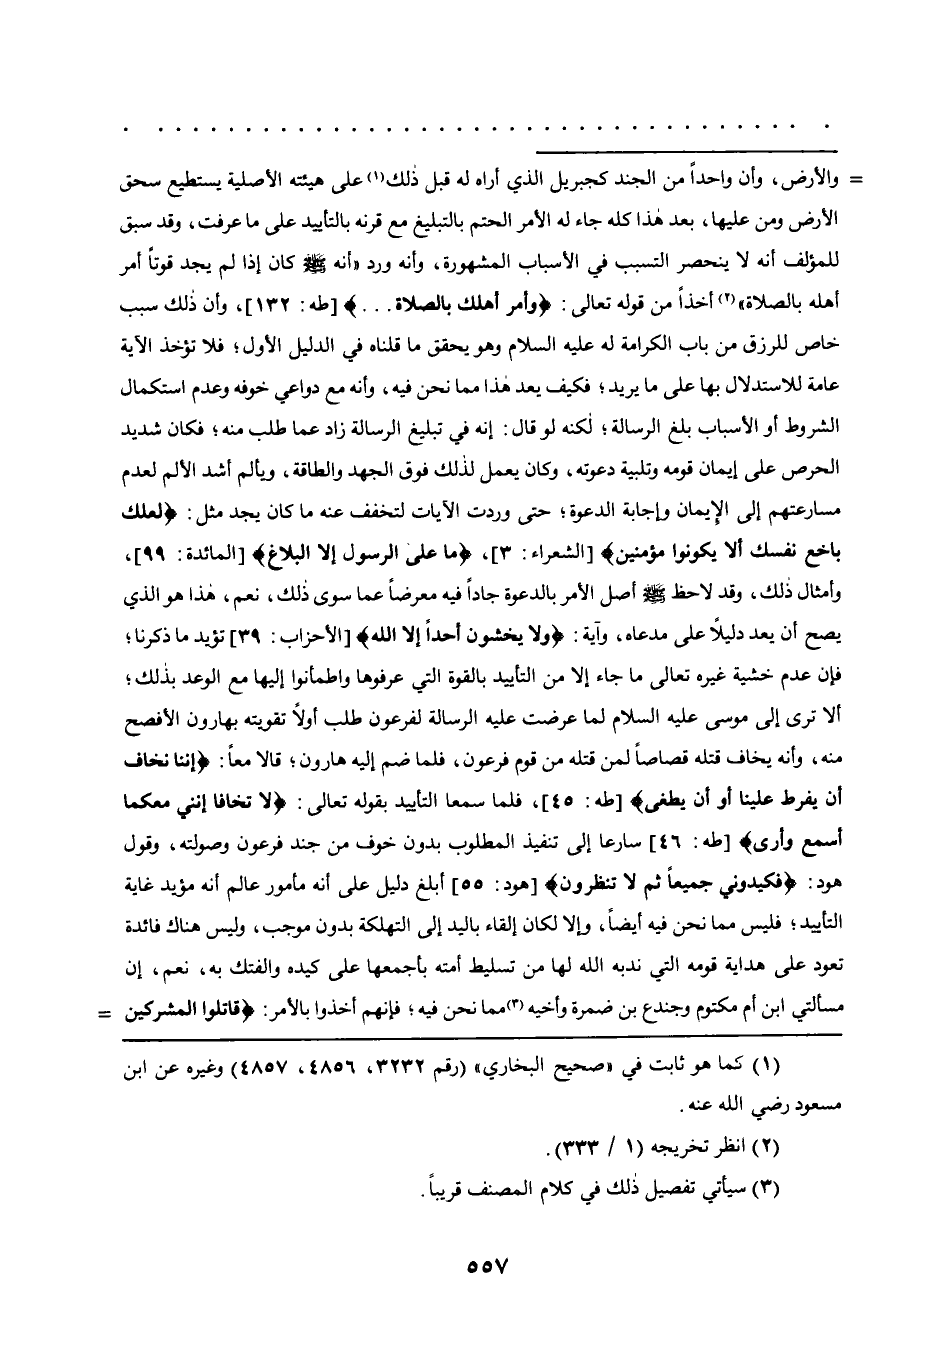 . . . . . . . . . . . . . . . . . . . . . . . . . . . . . . . . . . . . . . .
= والأرض، وأن واحداً من الجند كجبريل الذي أراه له قبل ذٰلك(١) على هيئته الأصلية يستطيع سحق
الأرض ومن عليها، بعد هٰذا كله جاء له الأمر الحتم بالتبليغ مع قرنه بالتأييد على ما عرفت، وقد سبق
للمؤلف أنه لا ينحصر التسبب في الأسباب المشهورة، وأنه ورد «أنه ﷺ كان إذا لم يجد قوتاً أمر
أهله بالصلاة»(٢) أخذاً من قوله تعالى: ﴿وأمر أهلك بالصلاة...﴾ [طه: ١٣٢]، وأن ذٰلك سبب
خاص للرزق من باب الكرامة له عليه السلام وهو يحقق ما قلناه في الدليل الأول؛ فلا تؤخذ الآية
عامة للاستدلال بها على ما يريد؛ فكيف يعد هٰذا مما نحن فيه، وأنه مع دواعي خوفه وعدم استكمال
الشروط أو الأسباب بلغ الرسالة؛ لٰكنه لو قال: إنه في تبليغ الرسالة زاد عما طلب منه؛ فكان شديد
الحرص على إيمان قومه وتلبية دعوته، وكان يعمل لذٰلك فوق الجهد والطاقة، ويألم أشد الألم لعدم
مسارعتهم إلى الإيمان وإجابة الدعوة؛ حتى وردت الآيات لتخفف عنه ما كان يجد مثل: ﴿لعلك
باخع نفسك ألا يكونوا مؤمنين﴾ [الشعراء: ٣]، ﴿ما على الرسول إلا البلاغ﴾ [المائدة: ٩٩]،
وأمثال ذٰلك، وقد لاحظ ﷺ أصل الأمر بالدعوة جاداً فيه معرضاً عما سوى ذٰلك، نعم، هٰذا هو الذي
يصح أن يعد دليلاً على مدعاه، وآية: ﴿ولا يخشون أحداً إلا الله﴾ [الأحزاب: ٣٩] تؤيد ما ذكرنا؛
فإن عدم خشية غيره تعالى ما جاء إلا من التأييد بالقوة التي عرفوها واطمأنوا إليها مع الوعد بذٰلك؛
ألا ترى إلى موسى عليه السلام لما عرضت عليه الرسالة لفرعون طلب أولاً تقويته بهارون الأفصح
منه، وأنه يخاف قتله قصاصاً لمن قتله من قوم فرعون، فلما ضم إليه هارون؛ قالا معاً: ﴿إننا نخاف
أن يفرط علينا أو أن يطغى﴾ [طه: ٤٥]، فلما سمعا التأييد بقوله تعالى: ﴿لا تخافا إنني معكما
أسمع وأرى﴾ [طه: ٤٦] سارعا إلى تنفيذ المطلوب بدون خوف من جند فرعون وصولته، وقول
هود: ﴿فكيدوني جميعاً ثم لا تنظرون﴾ [هود: ٥٥] أبلغ دليل على أنه مأمور عالم أنه مؤيد غاية
التأييد؛ فليس مما نحن فيه أيضاً، وإلا لكان إلقاء باليد إلى التهلكة بدون موجب، وليس هناك فائدة
تعود على هداية قومه التي ندبه الله لها من تسليط أمته بأجمعها على كيده والفتك به، نعم، إن
مسألتي ابن أم مكتوم وجندع بن ضمرة وأخيه(٣) مما نحن فيه؛ فإنهم أخذوا بالأمر: ﴿قاتلوا المشركين =
(١) كما هو ثابت في «صحيح البخاري» (رقم ٣٢٣٢، ٤٨٥٦، ٤٨٥٧) وغيره عن ابن
مسعود رضي الله عنه.
(٢) انظر تخريجه (١ / ٣٣٣).
(٣) سيأتي تفصيل ذٰلك في كلام المصنف قريباً.
٥٥٧